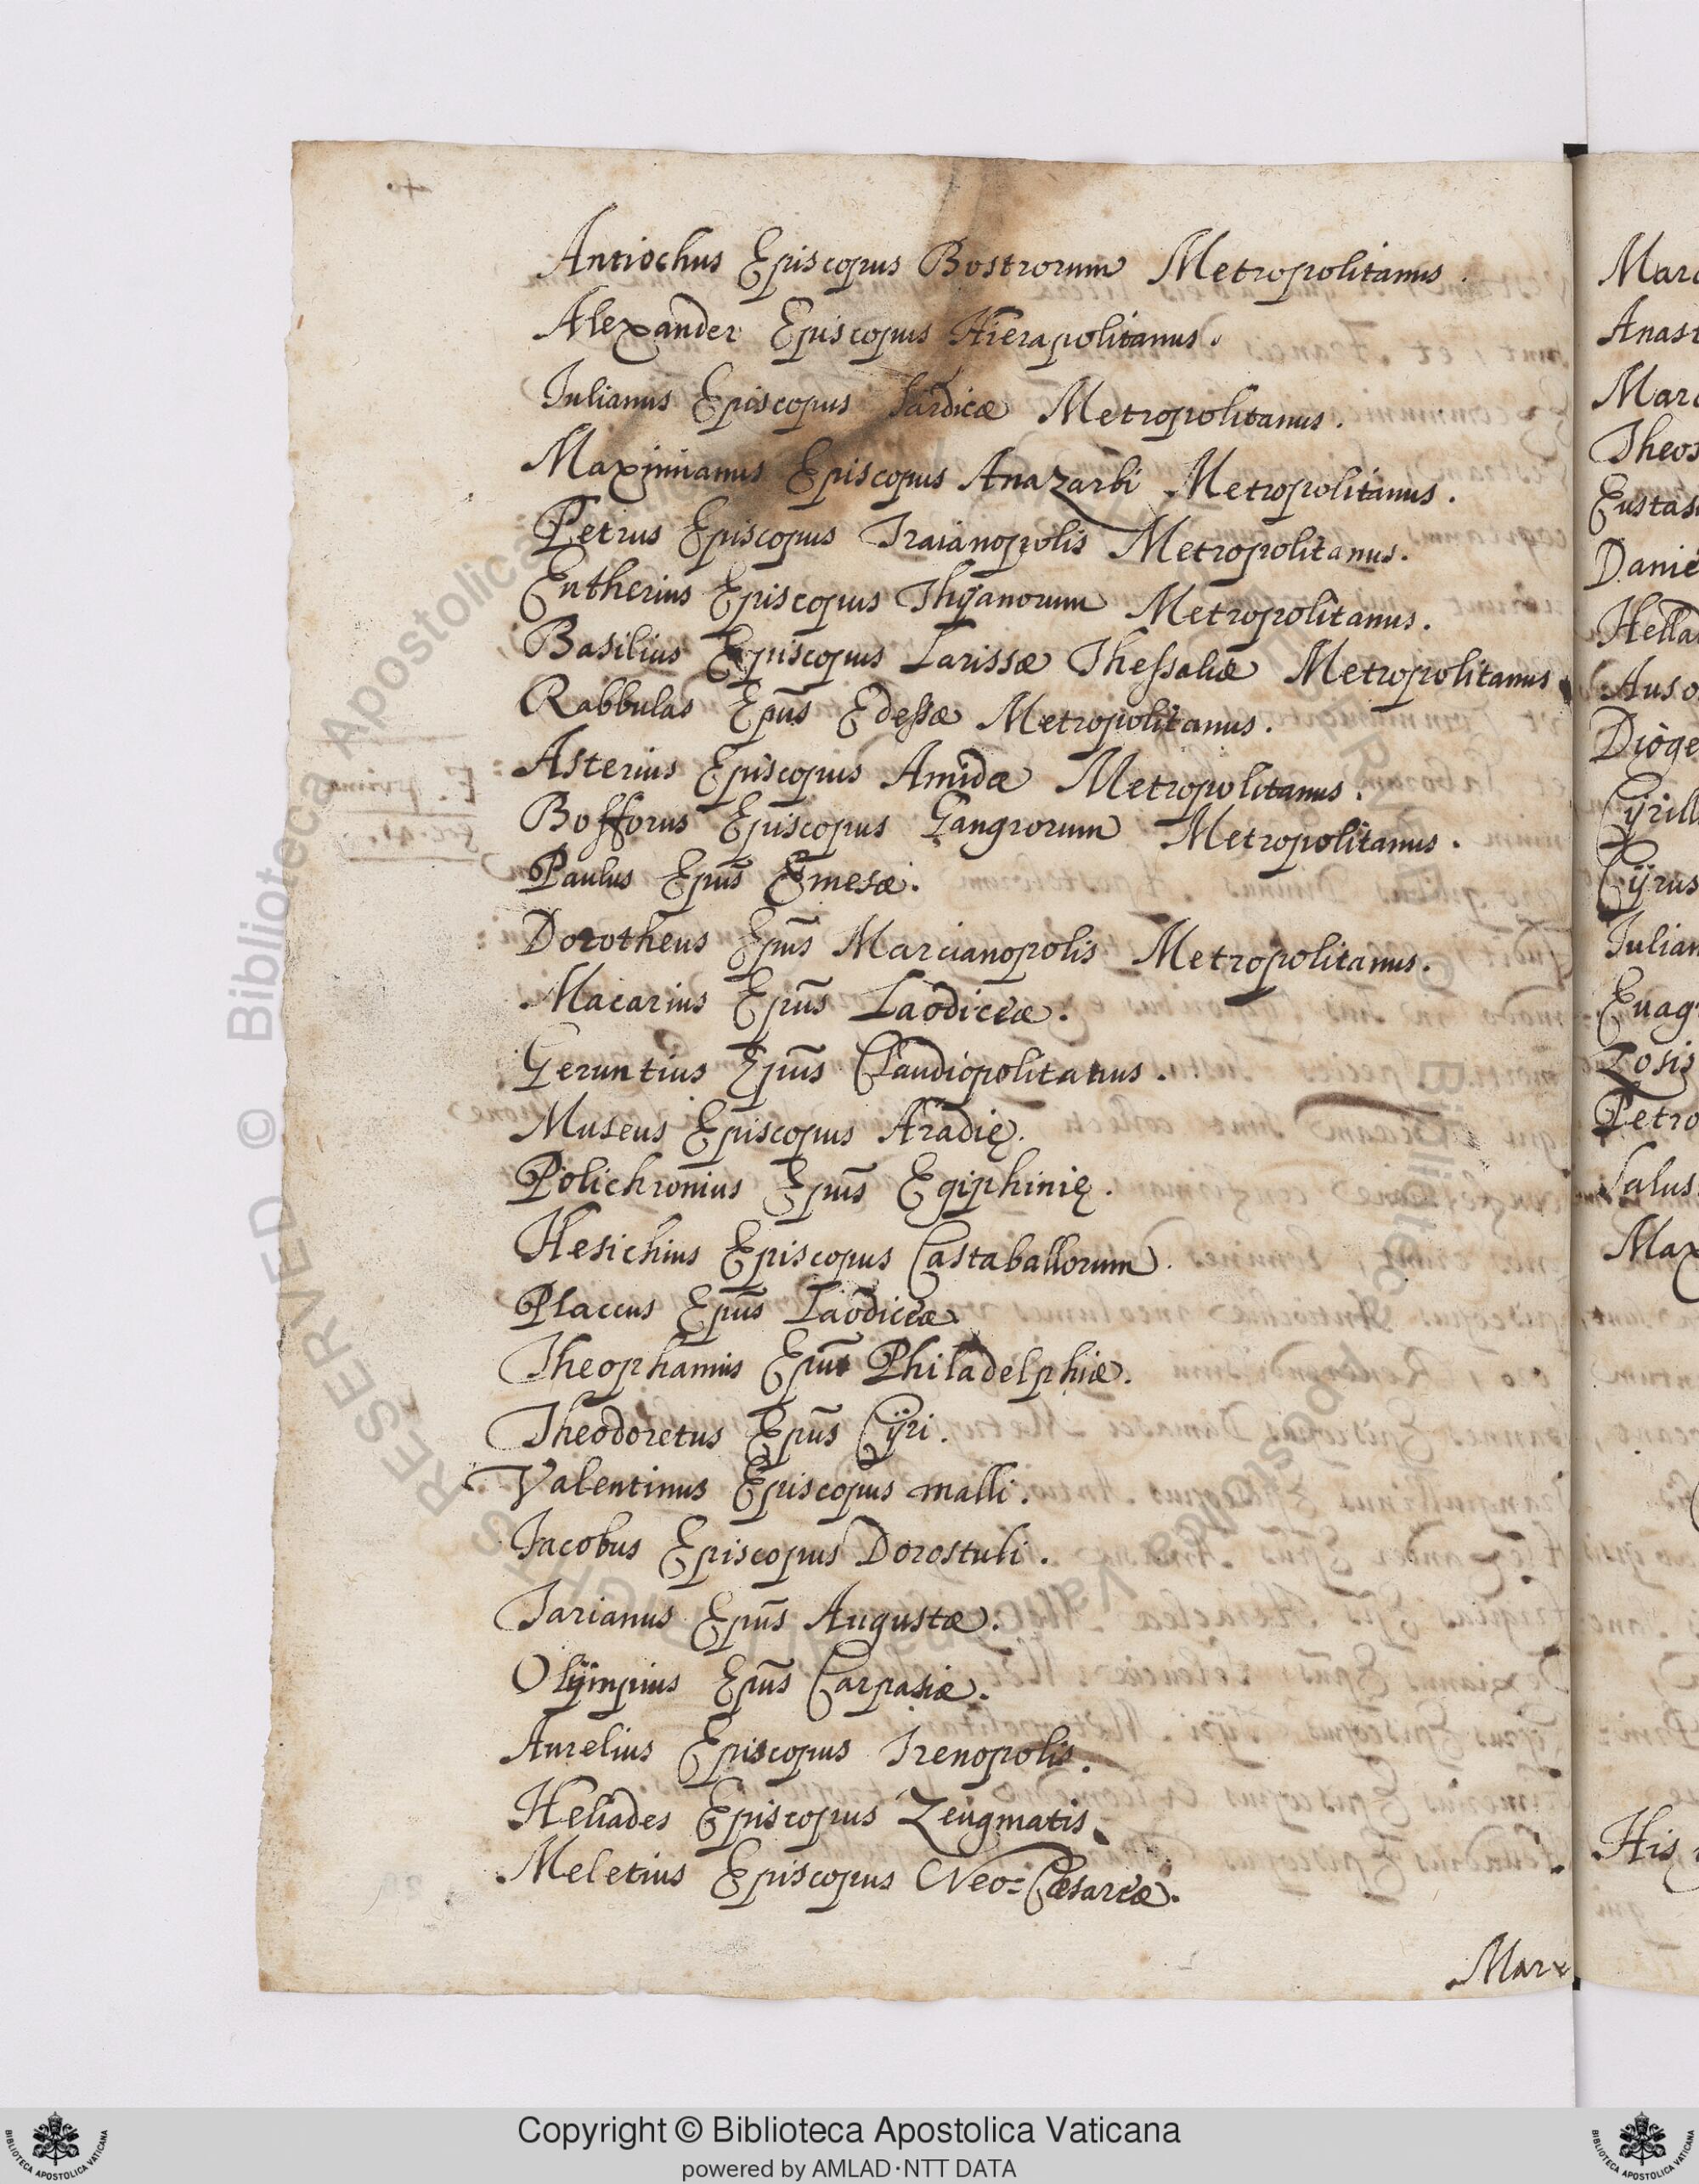 Antiochus Episcopus Bostrorum Metropolitanus.
Alexander Episcopus Hierapolitanus.
Iulianus Episcopus Sardicæ Metropolitanus.
Maximianus Episcopus Anazarbi Metropolitanus.
Petrus Episcopus Traianopolis Metropolitanus.
Eutherius Episcopus Thÿanorum Metropolitanus.
Basilius Episcopus Larissæ Thessaliæ Metropolitanus
Rabbulas Epũs Edessæ Metropolitanus.
Asterius Episcopus Amidæ Metropolitanus.
Bofforus Episcopus Gangrorum Metropolitanus.
Paulus Epũs Emesæ.
Dorotheus Epũs Marcianopolis Metropolitanus.
Macarius Epũs Laodiceæ.
Geruntius Epũs Claudiopolitanus.
Museus Episcopus Aradię.
Polichronius Epũs Egiphinię.
Hesichius Episcopus Castaballorum.
Placcus Epũs Laodiceæ
Theophanius Epũs Philadelphiæ.
Theodoretus Epũs Cÿri.
Valentinus Episcopus malli.
Iacobus Episcopus Dorostuli.
Tarianus Epũs Augustæ.
Olÿmpius Epũs Carpasiæ.
Aurelius Episcopus Irenopolis.
Heliades Episcopus Zeugmatis.
Meletius Episcopus Neo=Cæsareæ.
Mar
Marc
Anast
Marc
Theos
Eustas
Danie
Hella
Auso
Dioge
Cÿrill
Cÿrus
Iulian
Euag
Zosis
Petro
Salus
Max
His
© Biblioteca Apostolica Vaticana
RESERVED
Copyright © Biblioteca Apostolica Vaticana
powered by AMLAD·NTT DATA
BIBLIOTECA APOSTOLICA VATICANA
BIBLIOTECA APOSTOLICA VATICANA